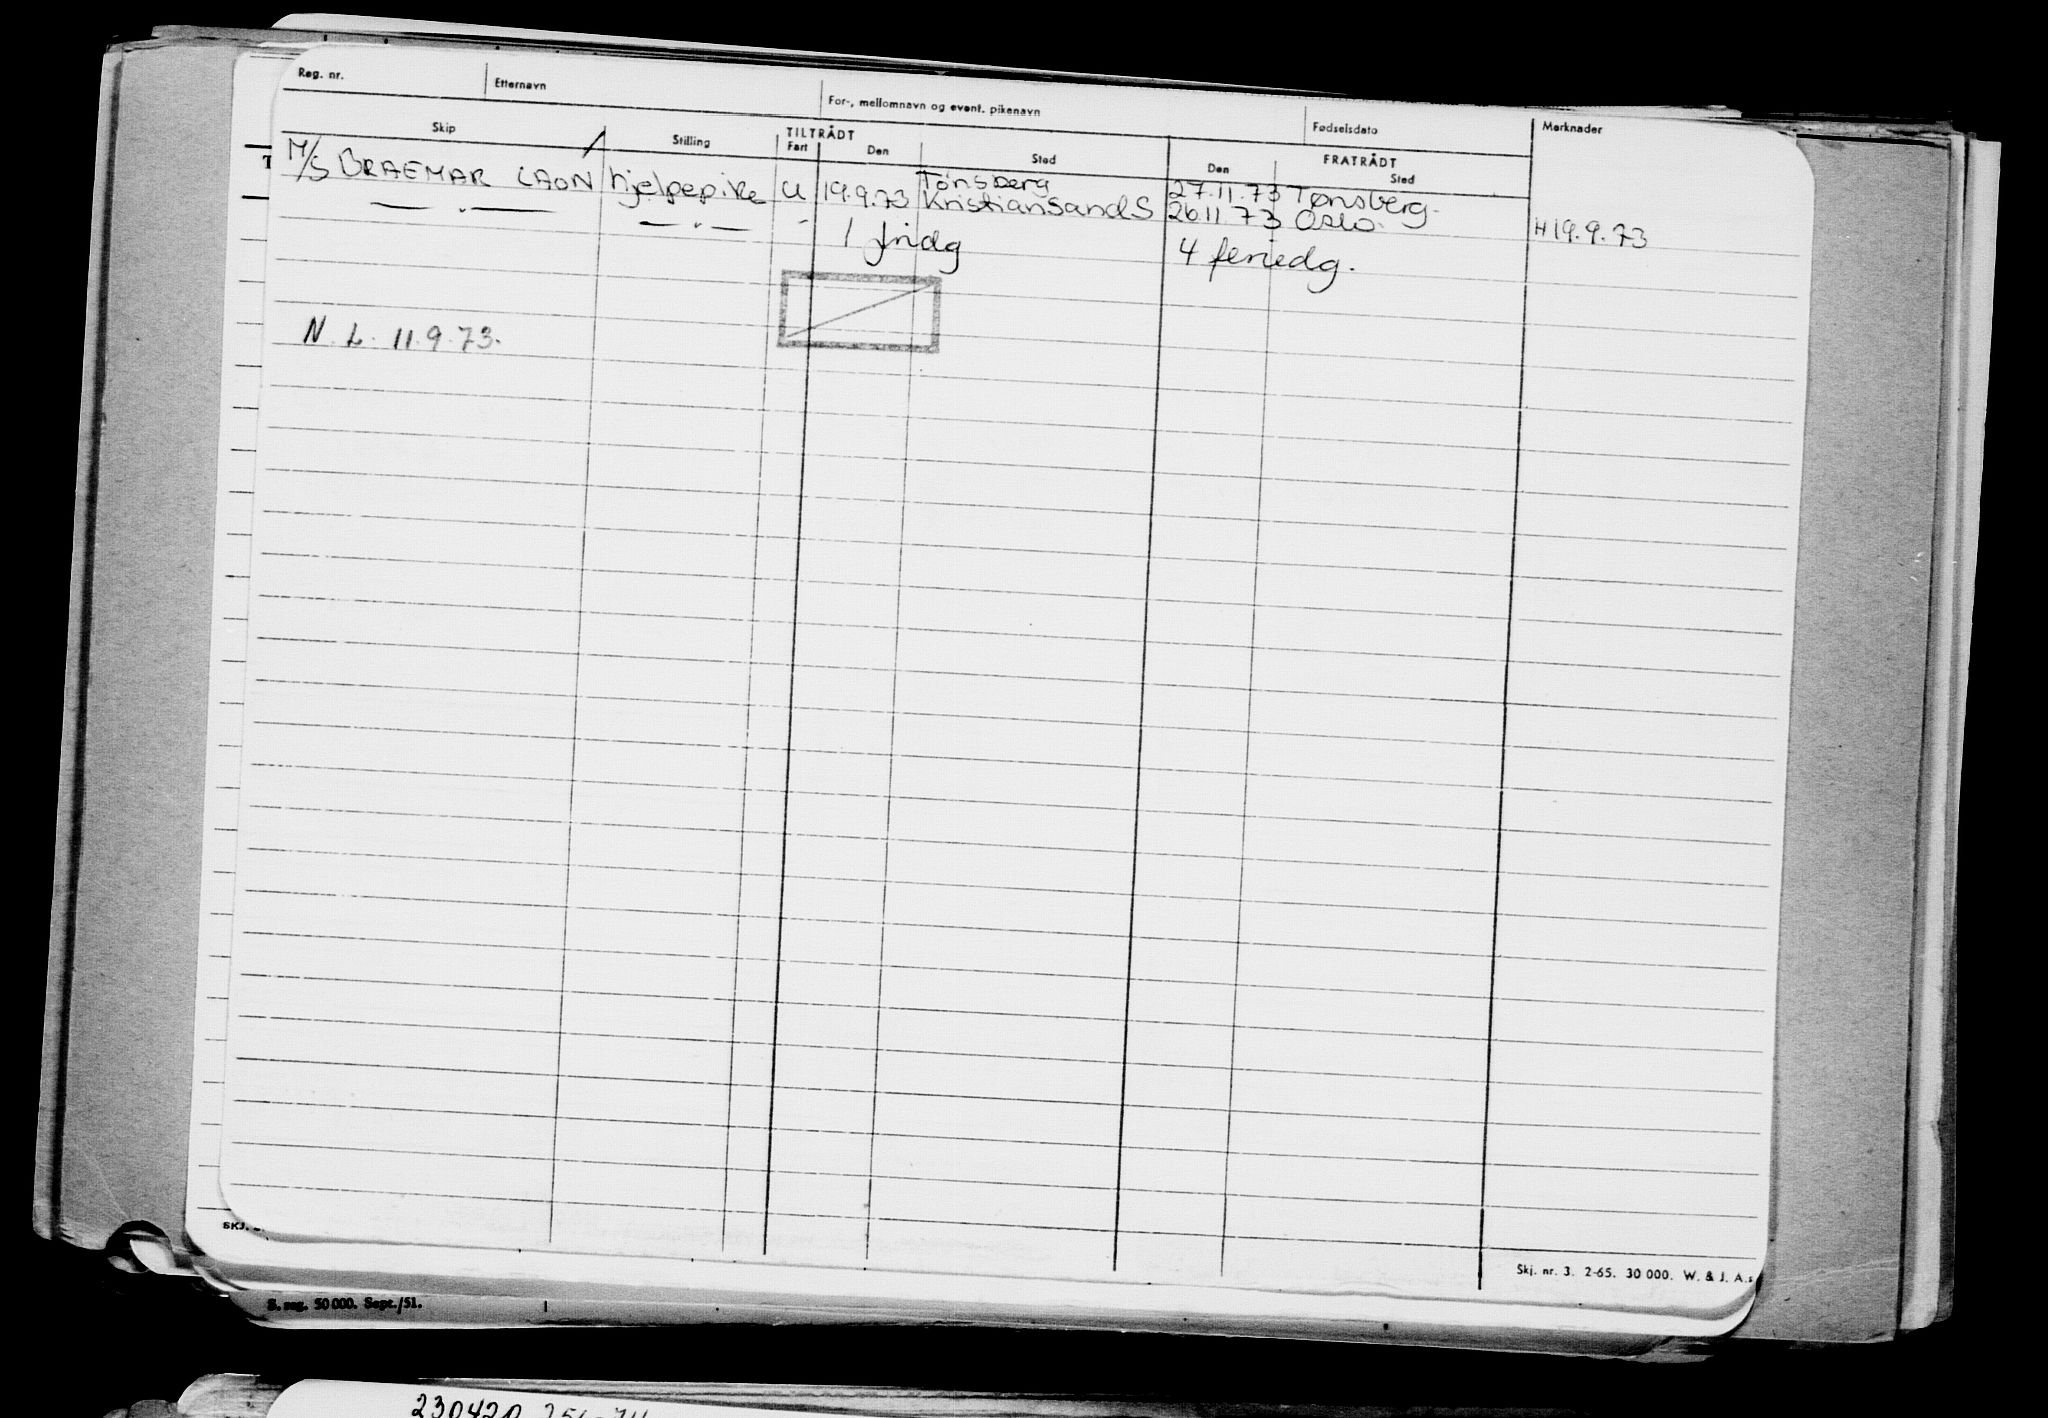 Reg. nr. Etternavn For-, mellomnavn og event. pikenavn Fødselsdato Merknader
Skip Stilling TILTRÅDT FRATRÅDT
Fart Den Sted Den Sted
M/S BRAEMAR hjelpepike U 19.9.73 Tønsberg 27.11.73 Tønsberg
— " — — " — " Kristiansand S 26.11.73 Oslo.
H 19.9.73
1 fridg 4 feriedg.
N. L. 11.9.73.
T
Skj. nr. 3. 2-65. 30 000. W. & J. A.s
SKJ.
S. reg. 50 000. Sept./51.
230420